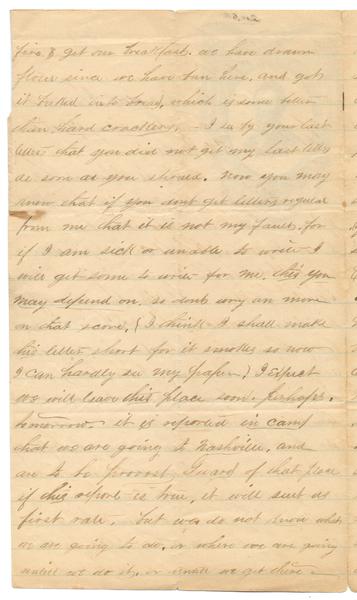 fire & get our breakfast. we have drawn
flour since we have been here, and got
it baked into bread, which is some better
than hard crackers, - I see by your last
letter that you did not get my last letter
as soon as you should. now you may
know that if you dont get letters regular
from me that it is not my fault, for
if I am sick or unable to write I
will get some to write for me. this you
may depend on, so dont wory an more
on that score, (I think I shall make
this letter short for it smokes so now
I can hardly see my paper) I expect
we will leave this place soon. perhaps.
tomorrow. it is reported in camp
that we are going to Nashville, and
are to be provost Guard of that place
if this report is true, it will suit us
first rate. but we do not know what
we are going to do, or where we are going
until we do it, or until we get there